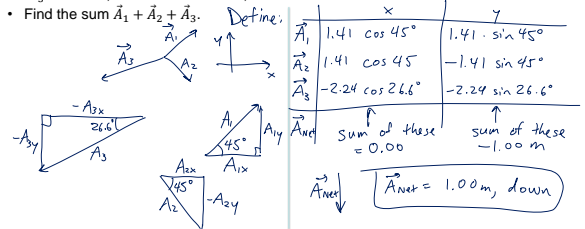 • Find the sum A⃗₁ + A⃗₂ + A⃗₃.
Define:
y
x
A⃗₁
A⃗₃
A₂
-A₃ₓ
26.6°
-A₃y
A₃
A₁
A₁y
45°
A₁ₓ
A₂ₓ
45°
A₂
-A₂y
x y
A⃗₁ 1.41 cos 45° 1.41 · sin 45°
A⃗₂ 1.41 cos 45 -1.41 sin 45°
A⃗₃ -2.24 cos 26.6° -2.24 sin 26.6°
A⃗Net sum of these sum of these
= 0.00 -1.00 m
A⃗Net A⃗Net = 1.00 m, down